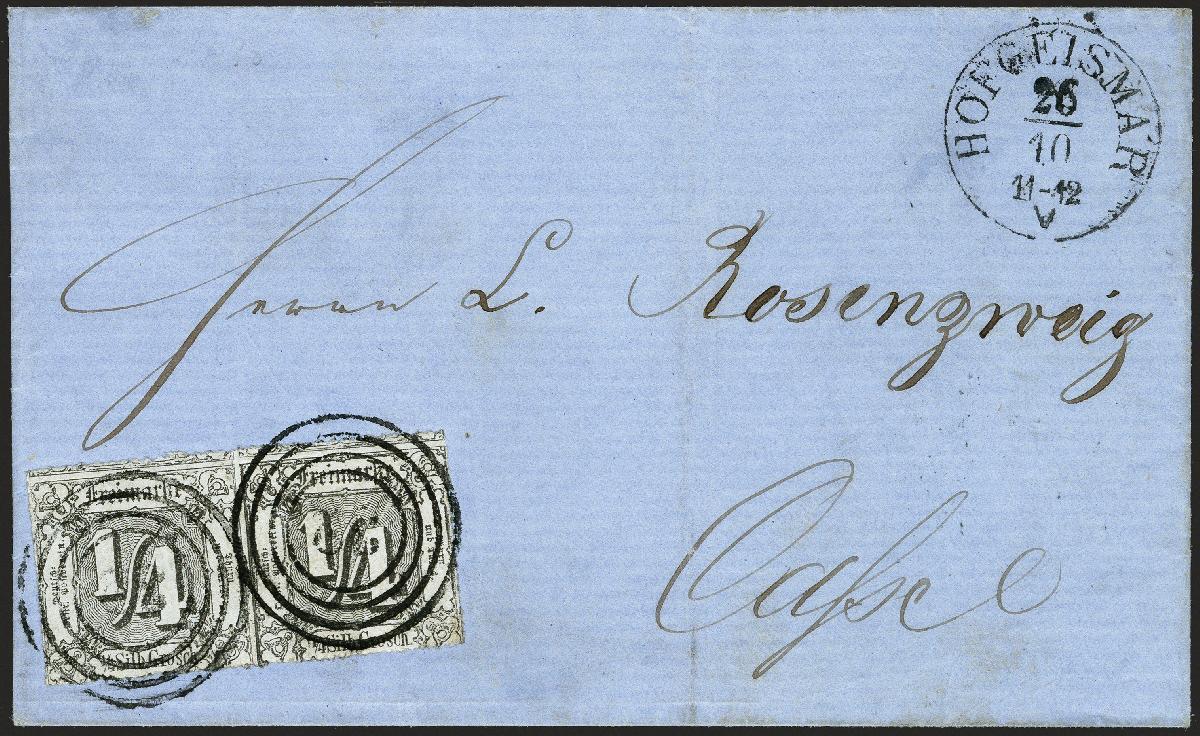 HOFGEISMAR
26
10
11-12
A
Herrn L. Rosenzweig
Freimarke
1/4
1/4 Silb. Grosch.
Freimarke
1/4
1/4 Silb. Grosch.